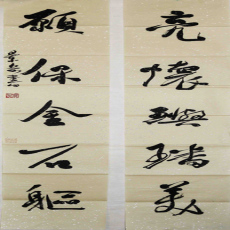 亮懷璵璠美
願保金石軀